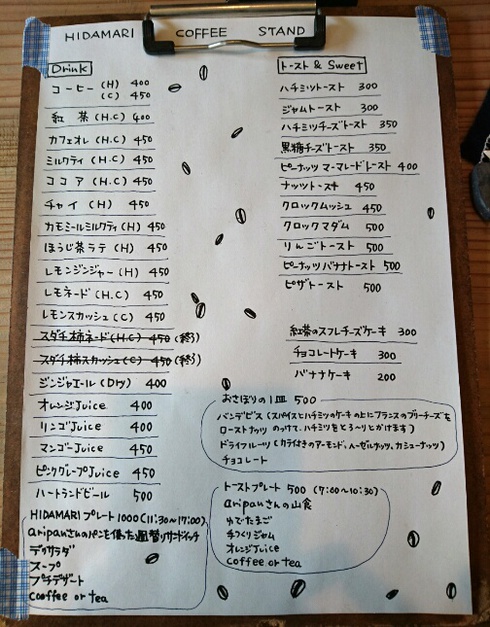 HIDAMARI COFFEE STAND
Drink
コーヒー (H) 400
(C) 450
紅 茶 (H.C) 400
カフェオレ (H.C) 450
ミルクティ (H.C) 450
ココア (H.C) 450
チャイ (H) 450
カモミールミルクティ (H) 450
ほうじ茶ラテ (H) 450
レモンジンジャー (H) 450
レモネード (H.C) 450
レモンスカッシュ (C) 450
スダチ柿ネード (H.C) 450 (終り)
スダチ柿スカッシュ (C) 450 (終り)
ジンジャエール (Dry) 400
オレンジJuice 400
リンゴJuice 400
マンゴーJuice 450
ピンクグレープJuice 450
ハートランドビール 500
HIDAMARI プレート 1000 (11:30~17:00)
aripanさんのパンを使った週替りサンドイッチ
デリサラダ
スープ
プチデザート
coffee or tea
トースト & Sweet
ハチミツトースト 300
ジャムトースト 300
ハチミツチーズトースト 350
黒糖チーズトースト 350
ピーナッツマーマレードトースト 400
ナッツトースト 450
クロックムッシュ 450
クロックマダム 500
りんごトースト 500
ピーナッツバナナトースト 500
ピザトースト 500
紅茶のスフレチーズケーキ 300
チョコレートケーキ 300
バナナケーキ 200
おさぼりの1皿 500
パンデピス (スパイスとハチミツのケーキの上にフランスのブリーチーズを
ローストナッツ のっけて、ハチミツをとろ〜りとかけます)
ドライフルーツ (カラ付きのアーモンド、ヘーゼルナッツ、カシューナッツ)
チョコレート
トーストプレート 500 (7:00~10:30)
aripanさんの山食
ゆでたまご
手づくりジャム
オレンジJuice
coffee or tea